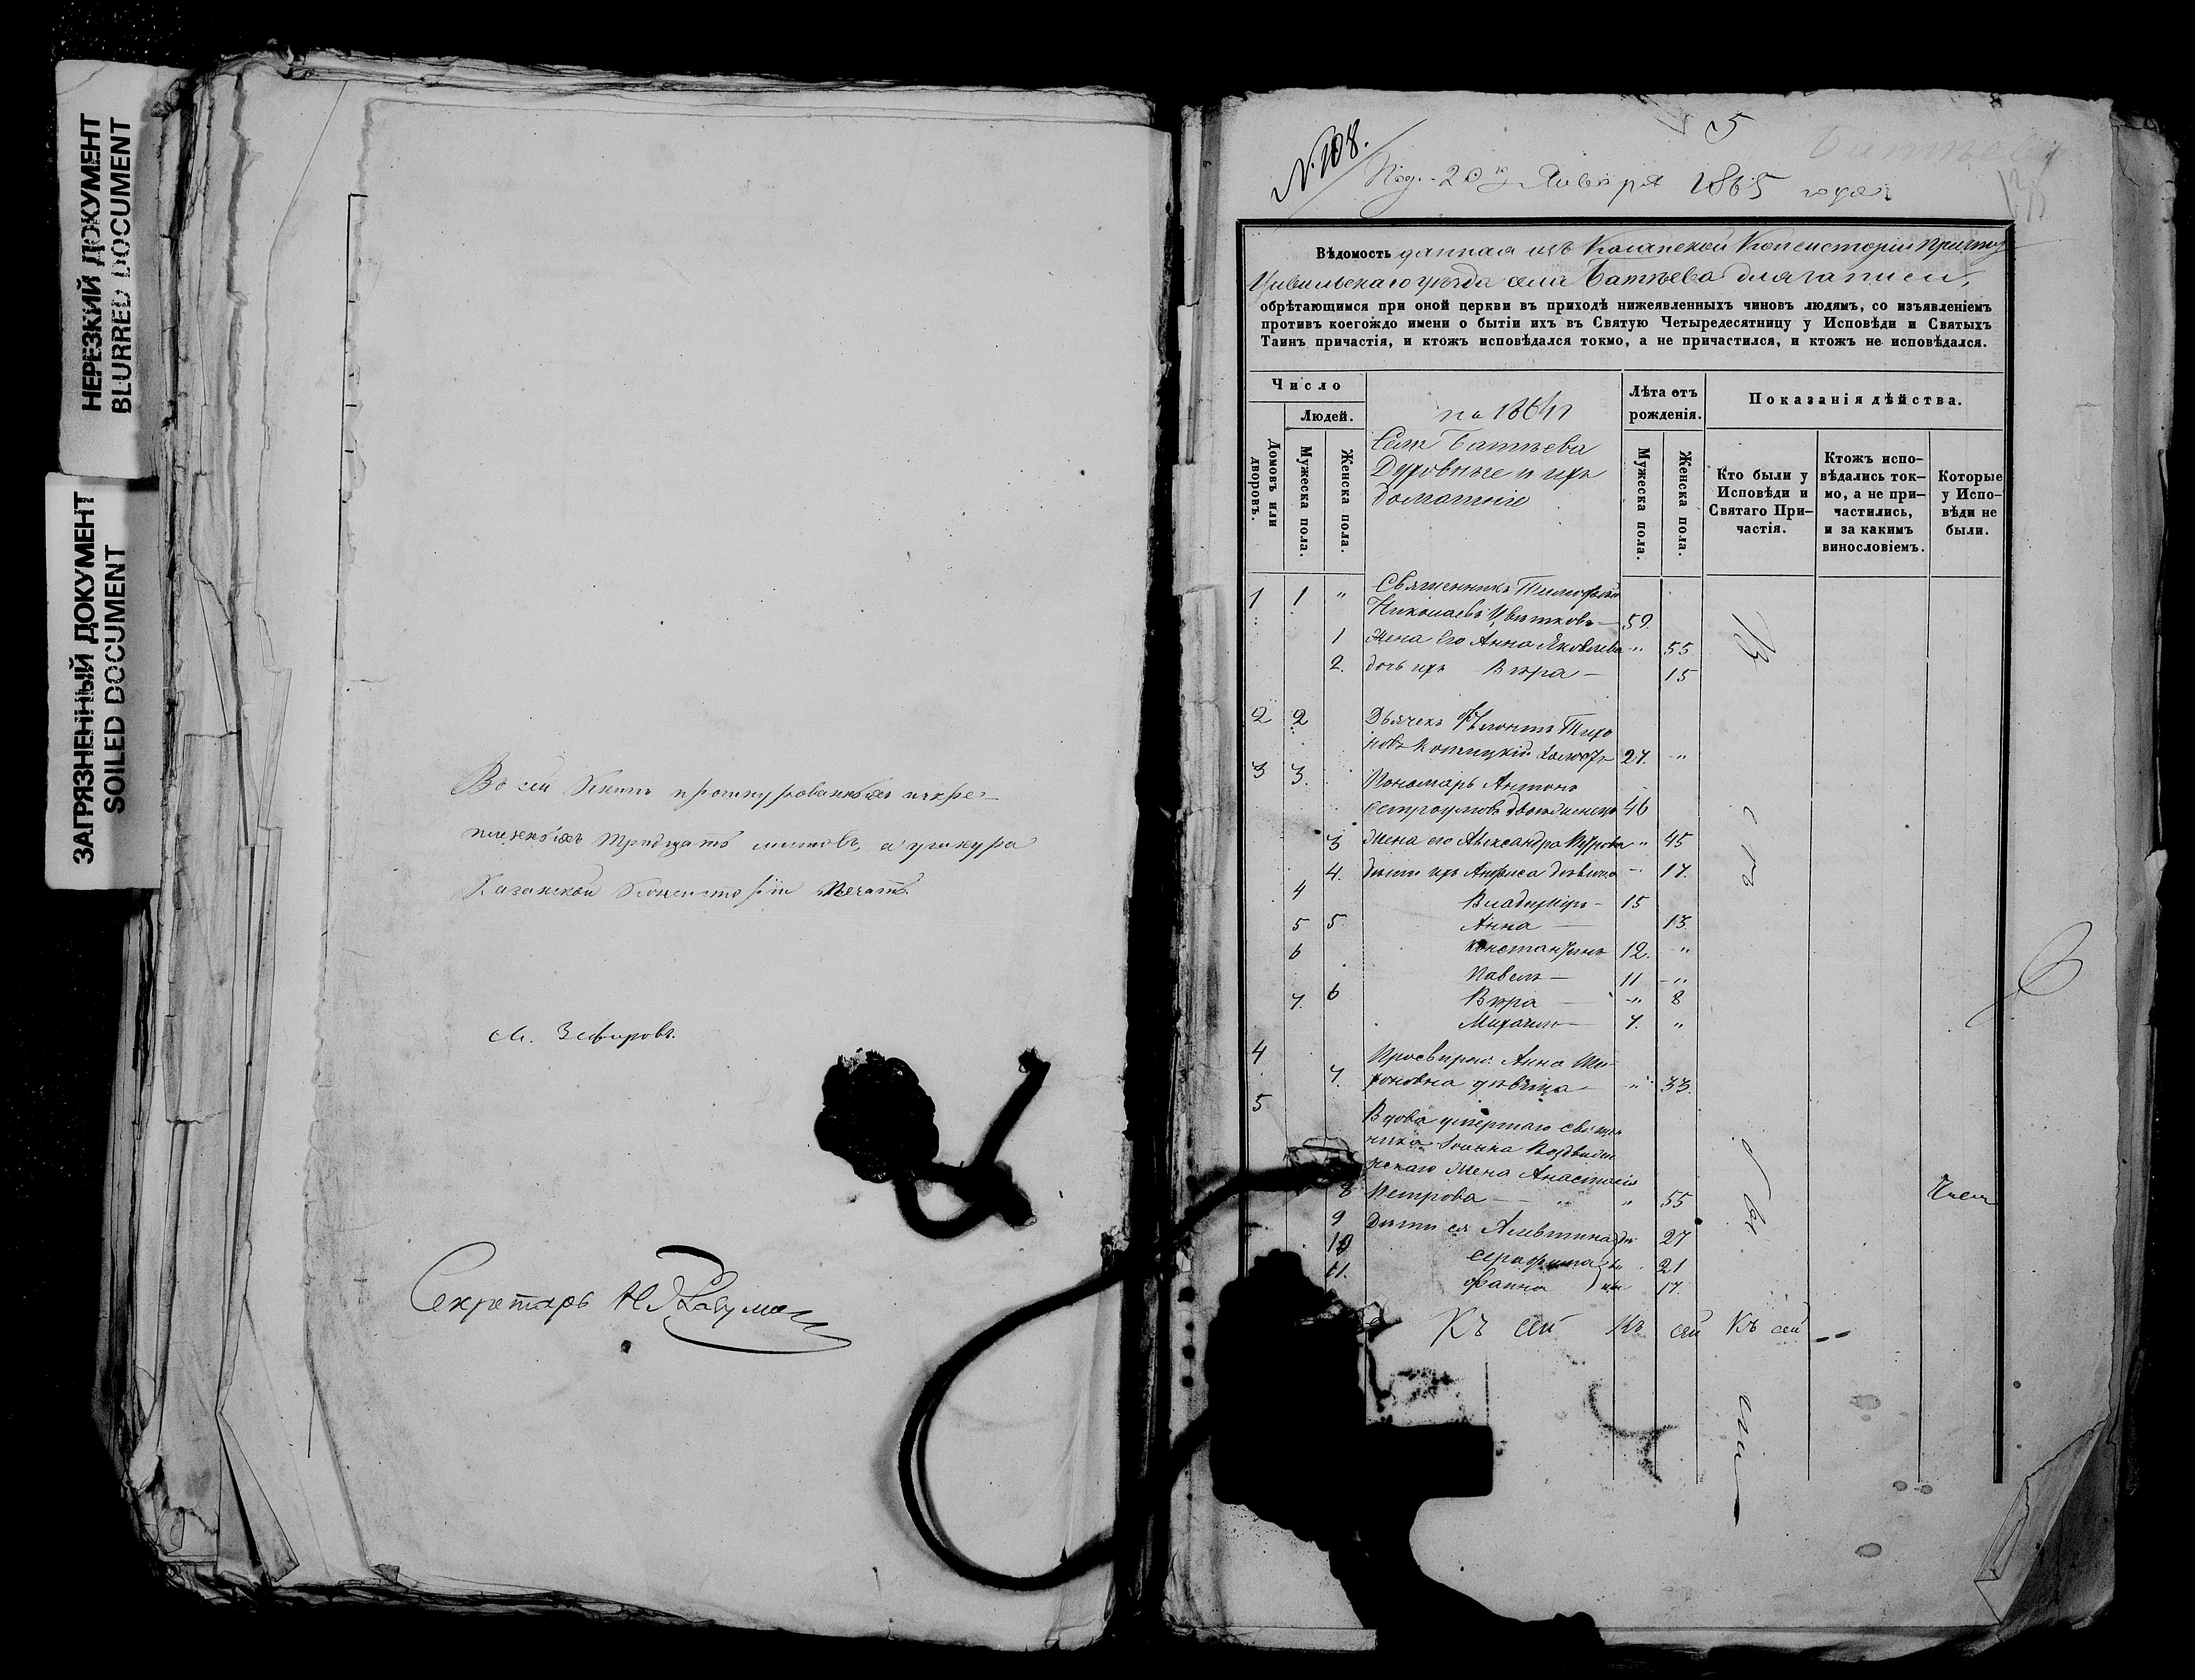 НЕРЕЗКИЙ ДОКУМЕНТ
BLURRED DOCUMENT
ЗАГРЯЗНЕННЫЙ ДОКУМЕНТ
SOILED DOCUMENT
Во сей Книгѣ прошнурованныхъ и скре-
пленныхъ тридцать листовъ, а у шнура
Казанской Консисторіи печать.
М. Зефировъ.
Секретарь
5
N. 108.
Под. 20го Января 1865 года
Вѣдомость данная изъ Казанской Консисторіи причту
Цивильскаго уѣзда села Батѣева для записи,
обрѣтающимся при оной церкви въ приходѣ нижеявленныхъ чиновъ людямъ, со изъявленіемъ
противъ коегождо имени о бытіи ихъ въ Святую Четыредесятницу у Исповѣди и Святыхъ
Таинъ причастія, и ктожъ исповѣдался токмо, а не причастился, и ктожъ не исповѣдался.
Число
Людей.
Домовъ или дворовъ.
Мужеска пола.
Женска пола.
на 1864 г
Села Батѣева
Духовные и ихъ
домашніе
Лѣта отъ рожденія.
Мужеска пола.
Женска пола.
Показанія дѣйства.
Кто были у Исповѣди и Святаго При-частія.
Ктожъ испо-вѣдались ток-мо, а не при-частились, и за какимъ винословіемъ.
Которые у Испо-вѣди не были.
1 1 " Священникъ Тимофей
Николаевъ Цвѣтковъ — 59.
1 Жена его Анна Яковлева " 55
2. дочь ихъ Вѣра — 15
2 2 Дьячекъ Тихо
новъ 27. "
3 3. Пономарь Антонъ
46
3 Жена его Александра " 45
4. дѣти ихъ Анфиса — 17.
4 Владиміръ — 15
5 5 Анна — 13
6 Константинъ 12. "
Павелъ — 11 "
7. 6 Вѣра — " 8
Михаилъ — 7. "
4 Просвирня Анна Ми-
7. роновна дѣвица — " 33.
5 Вдова умершаго священ
ника Іоанна Воздвижен
скаго жена Анастасія
8 Петрова — " 55
9 Дѣти ея Алевтина 27
10 Серафима 21
11. Фаина 17.
Къ сей Къ сей Къ сей